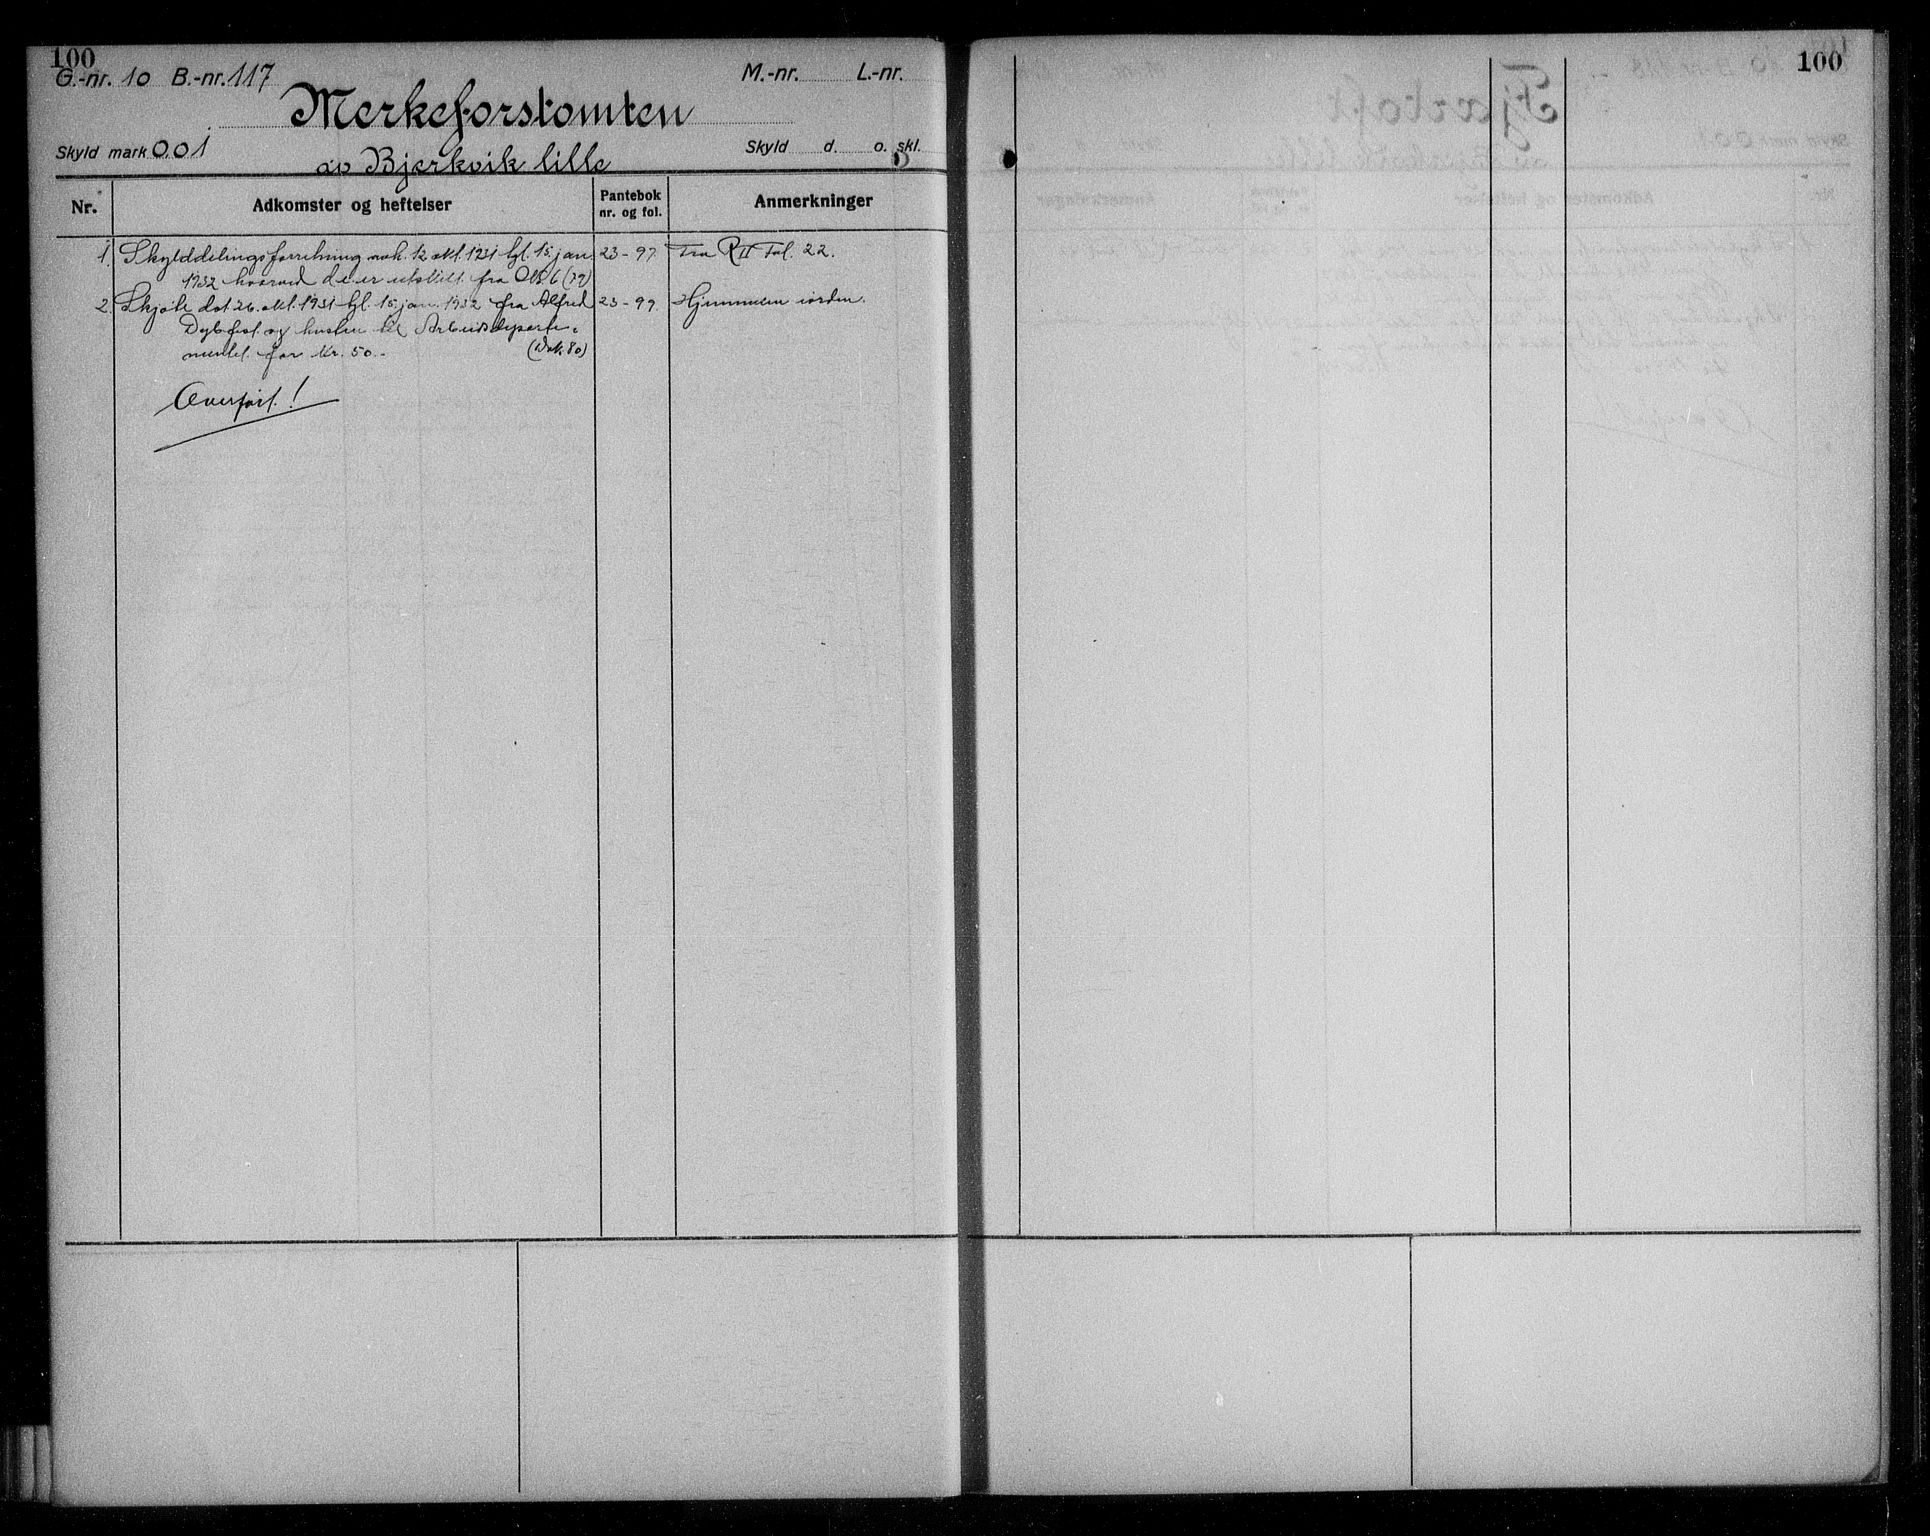 100
100
G.-nr. 10 B.-nr. 117
M.-nr. L.-nr.
Merkeforstomten
Skyld mark 0 01
Skyld d. o. skl.
av Bjerkvik lille
Nr.
Adkomster og heftelser
Pantebok nr. og fol.
Anmerkninger
1. Skylddelingsforretning avh. 12 okt. 1931 tgl. 15. jan. 23 - 97. Fra P II Fol. 22.
1932 hvorved de er utskilt fra 6 (79)
2. Skjøte dat 26. okt. 1931 tgl. 15. jan. 1932 fra Alfred 23 - 97. Hjemmelen iorden.
og hustru til Arbeidsdeparte-
mentet for kr. 50.- (Dok. 80)
Overført!